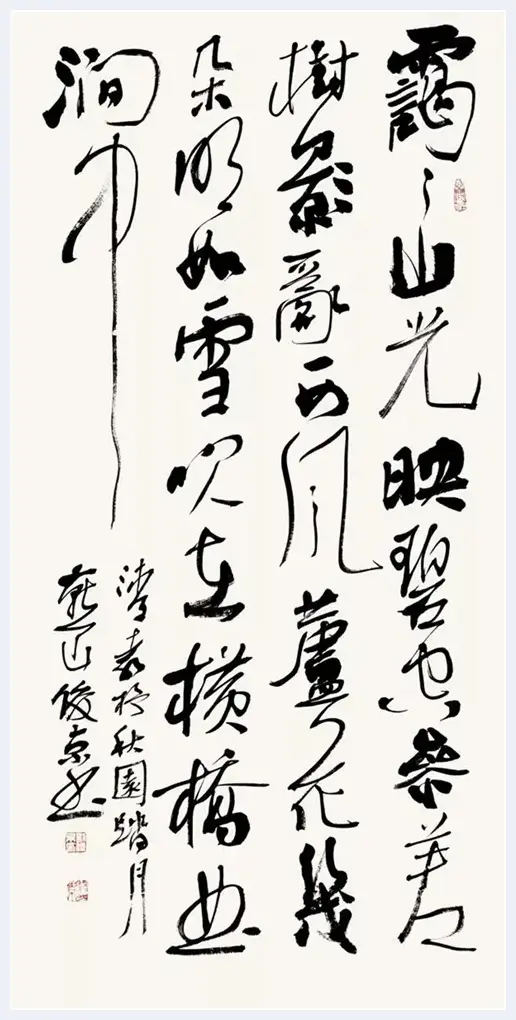 靄〻山光映碧空參差
樹影亂西風蘆花幾
朵明如雪吹在橫橋曲
澗中
清袁枚秋園踏月
燕山俊京书